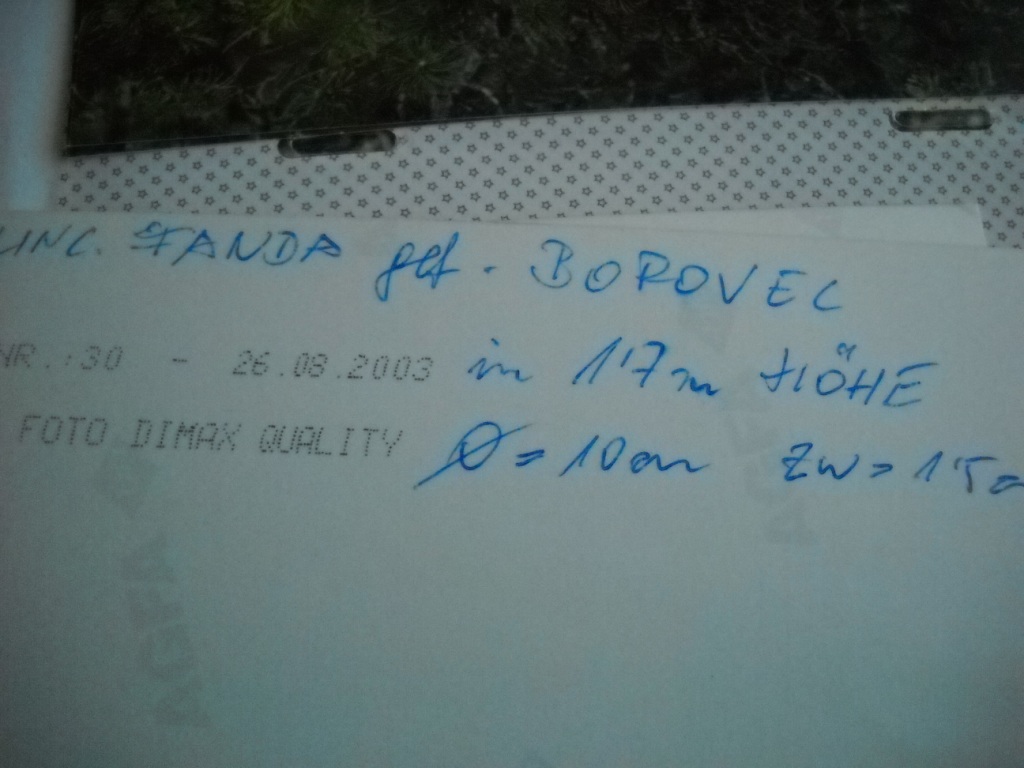 UNC. STANDA gef. BOROVEC
NR.:30 - 26.08.2003 in 17m HÖHE
FOTO DIMAX QUALITY Ø = 10cm ZW = 15